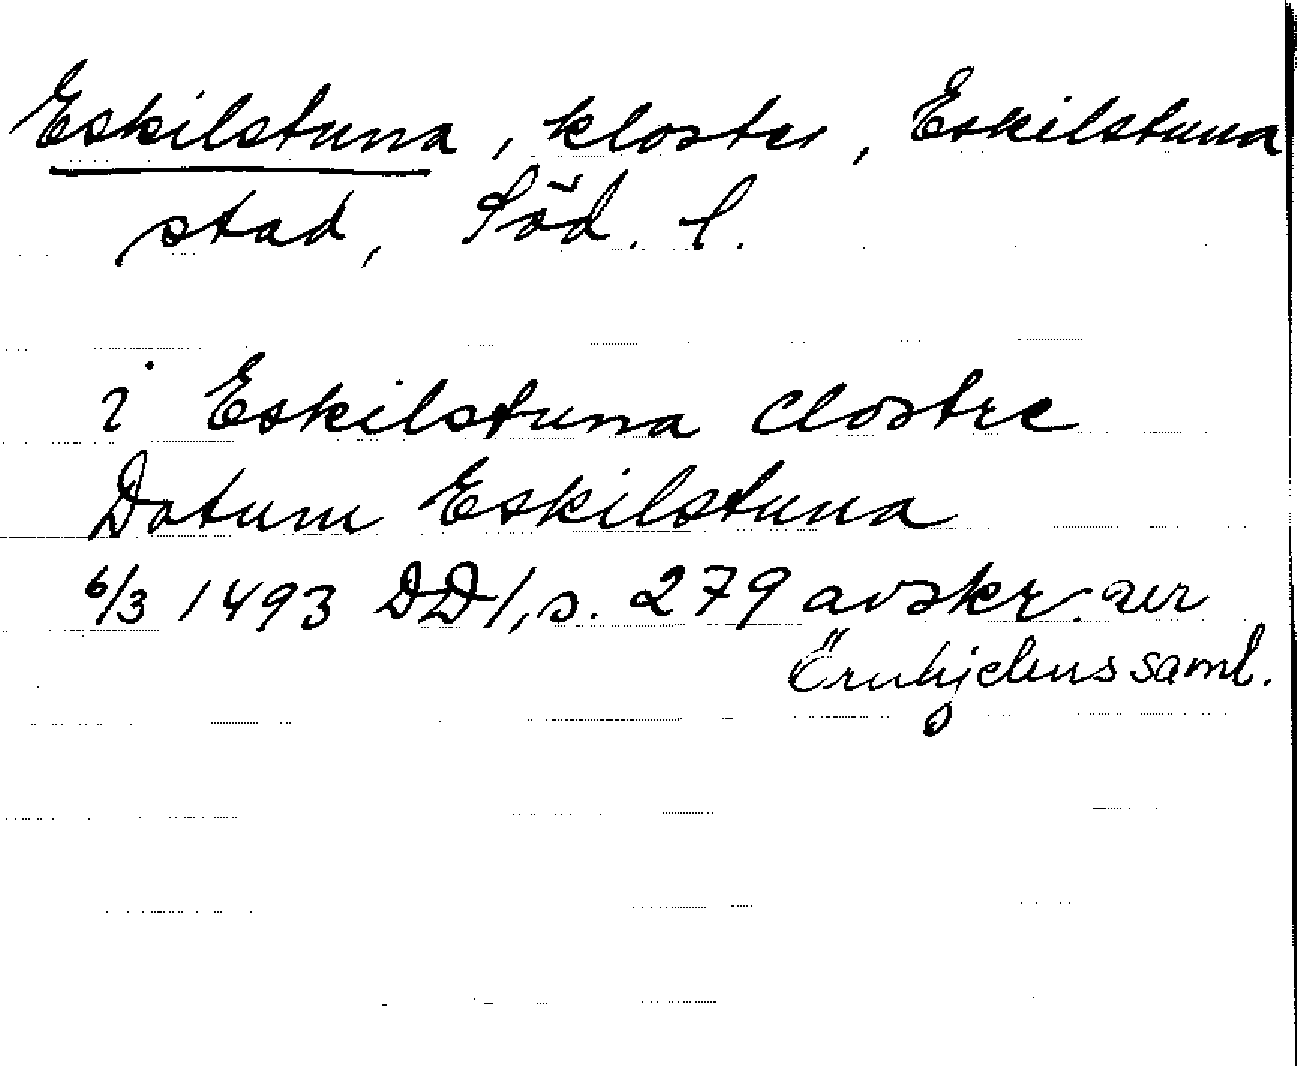 Eskilstuna, kloster, Eskilstuna
stad, Söd. l.
i Eskilstuna clostre
Datum Eskilstuna
6/3 1493 DD1, s. 279 avskr. ur
Örnhjelms saml.